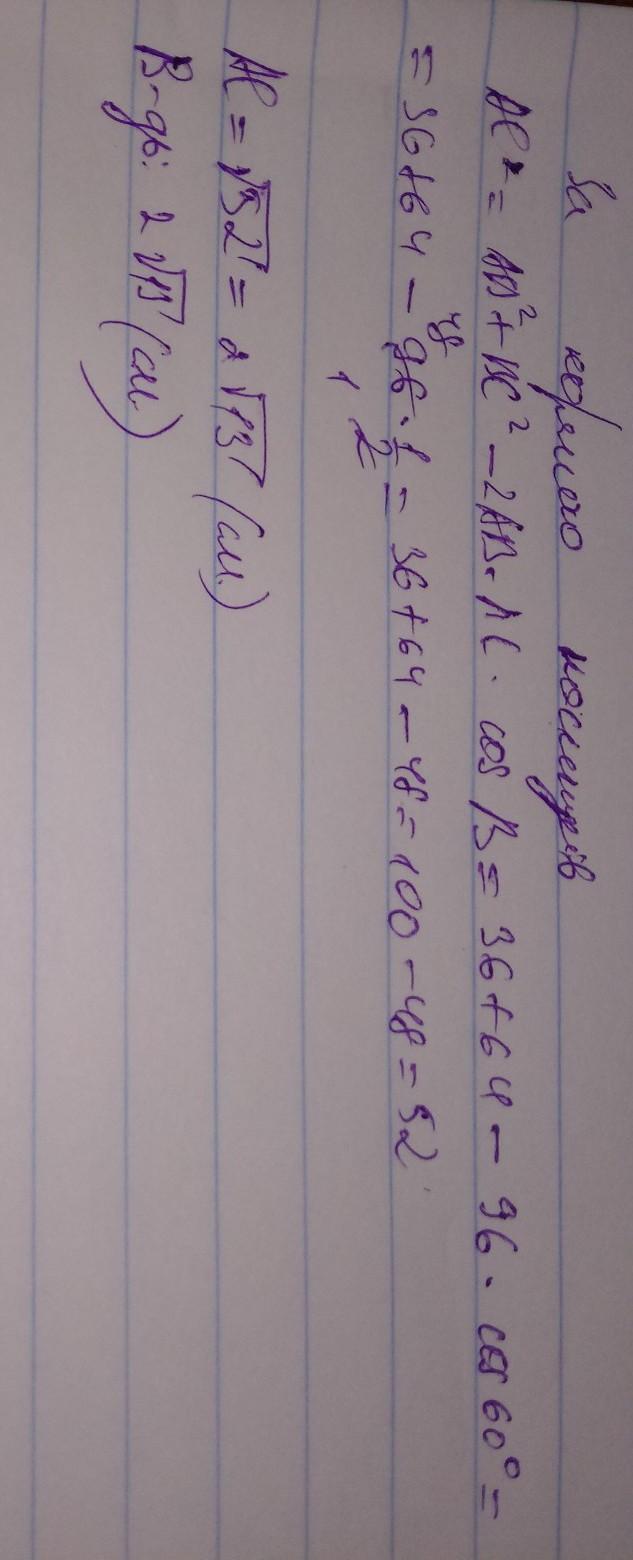 За теоремою косинусів
AC² = AB² + BC² - 2AB · AC · cos B = 36 + 64 - 96 · cos 60° =
= 36 + 64 - 96 48 · 1/2 1 = 36 + 64 - 48 = 100 - 48 = 52
AC = √52 = 2√13 (см.)
В-дь: 2√13 (см.)